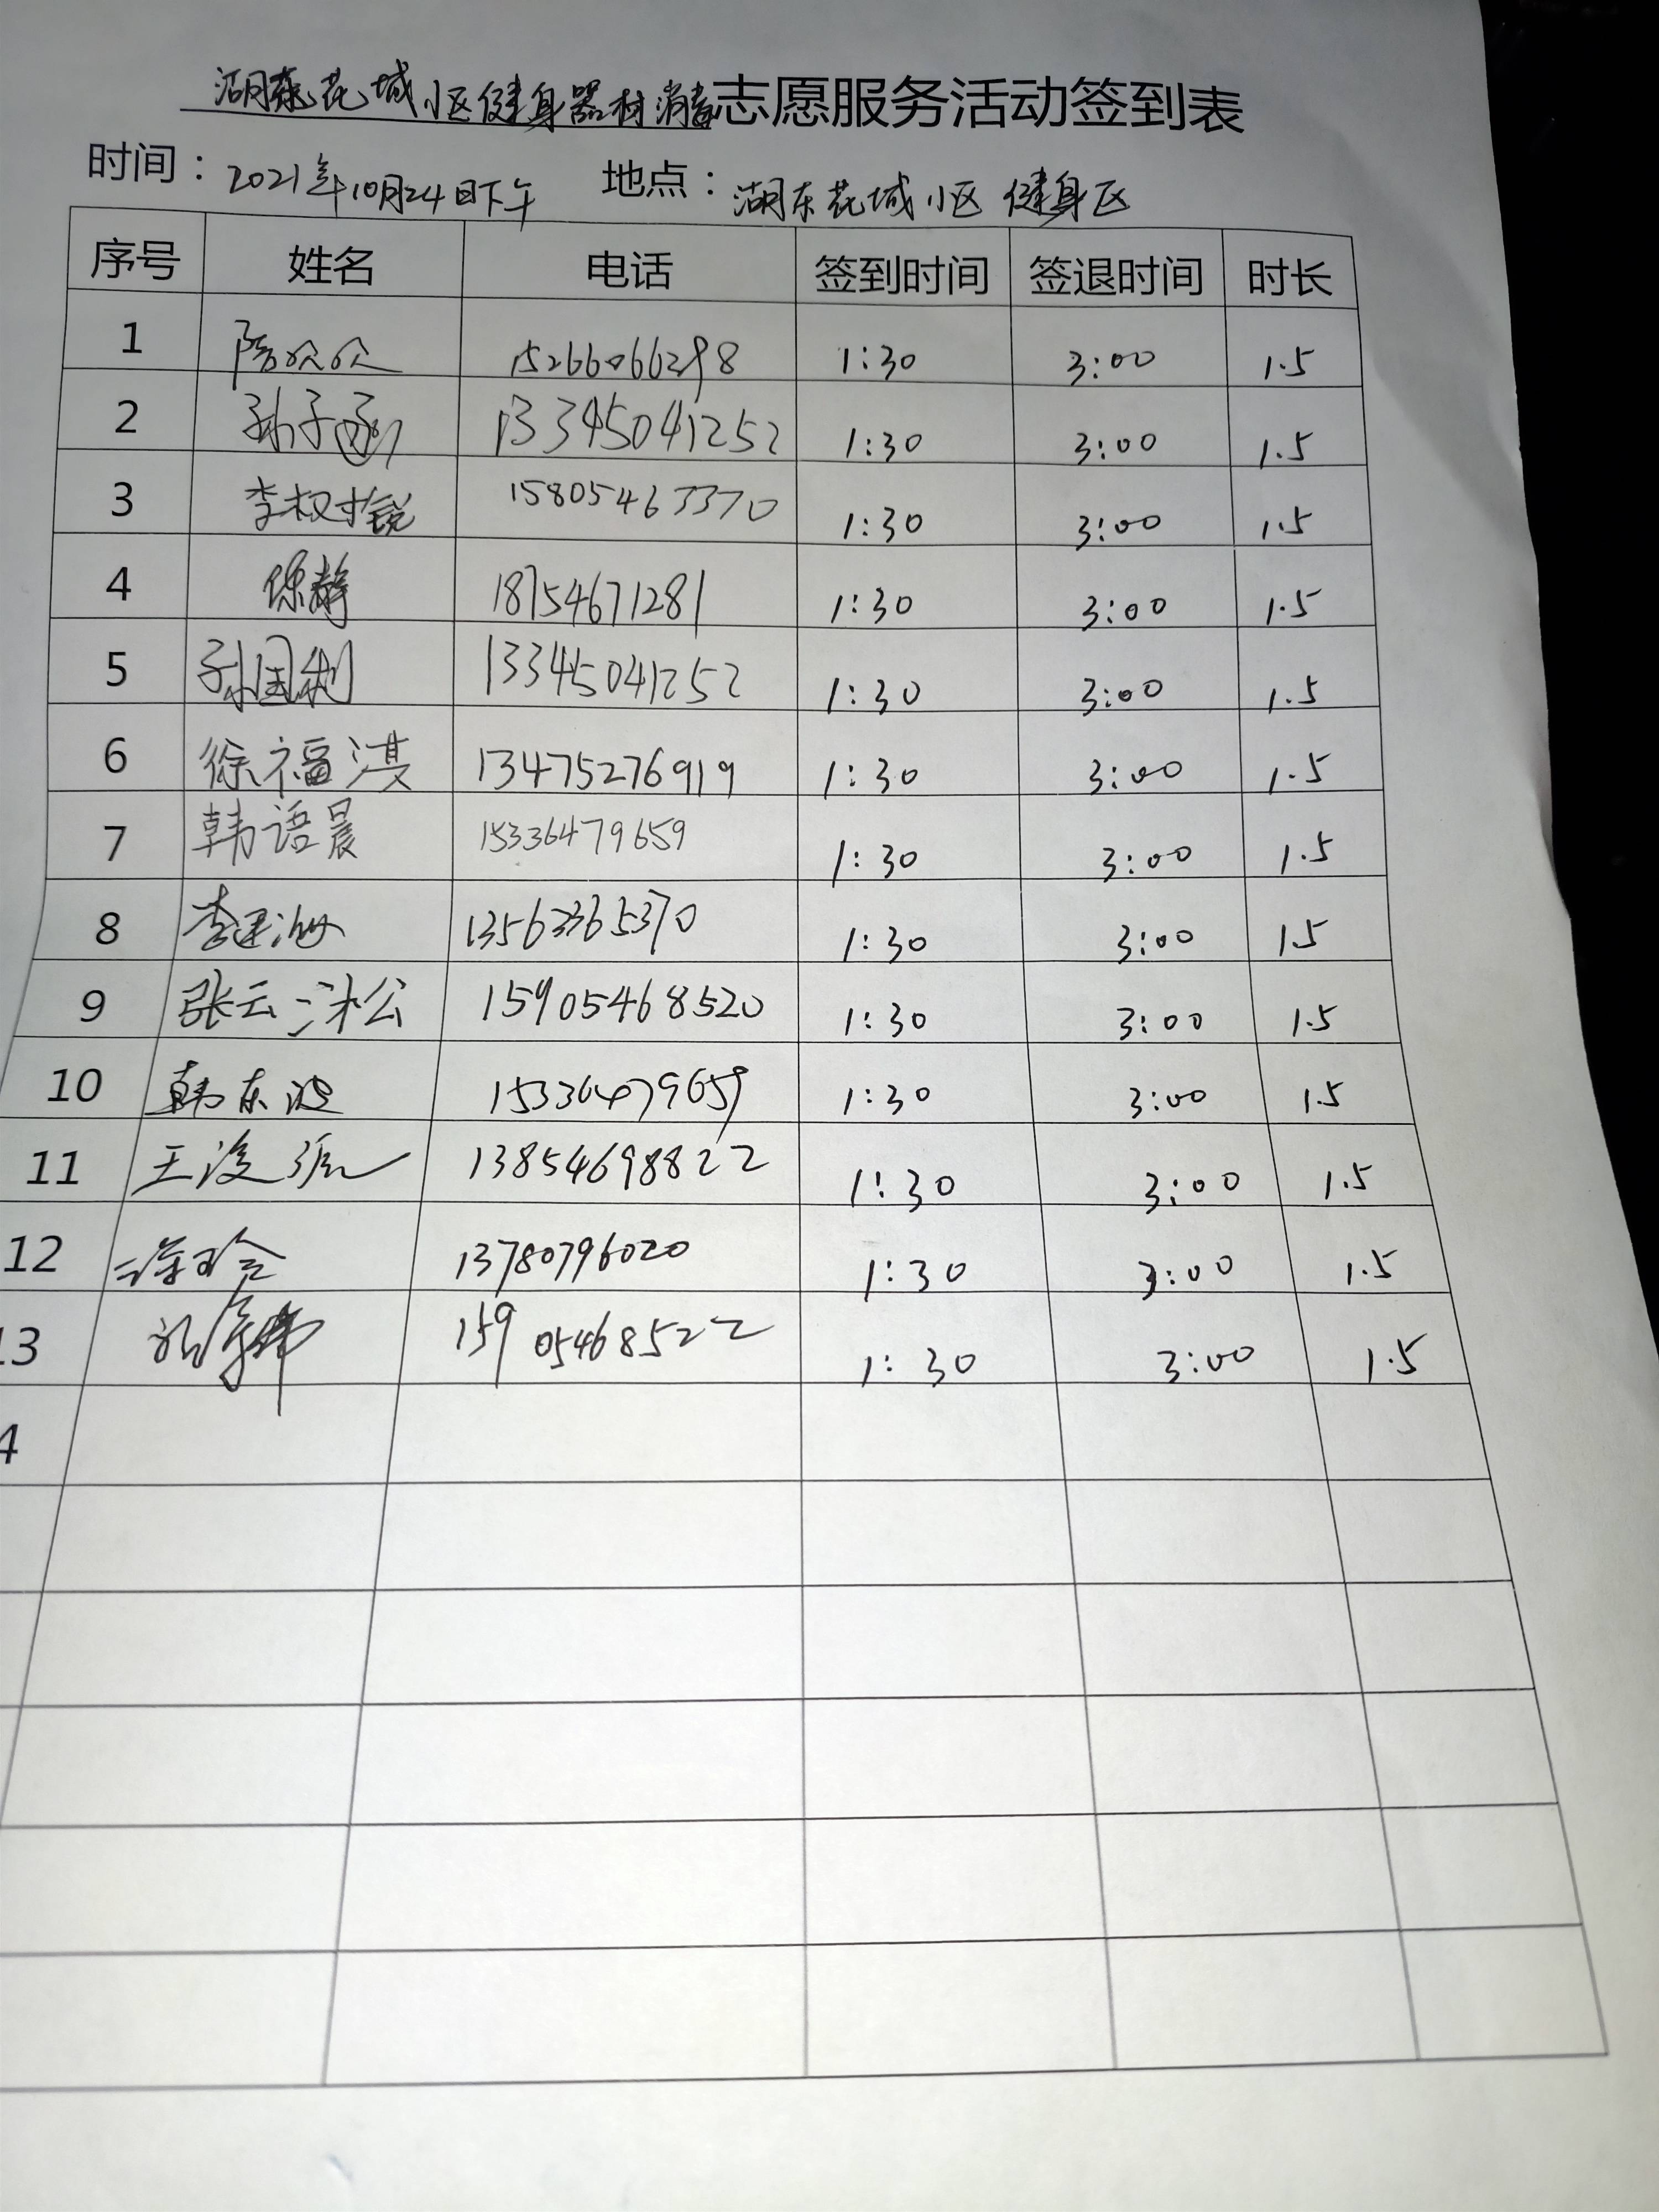 湖东花城小区健身器材消毒志愿服务活动签到表
时间：2021年10月24日下午 地点：湖东花城小区 健身区
序号 姓名 电话 签到时间 签退时间 时长
1 15266066298 1:30 3:00 1.5
2 孙子涵 13345041252 1:30 3:00 1.5
3 李权 15805463370 1:30 3:00 1.5
4 徐静 18754671281 1:30 3:00 1.5
5 孙国利 13345041252 1:30 3:00 1.5
6 徐福淇 13475276919 1:30 3:00 1.5
7 韩语晨 15336479659 1:30 3:00 1.5
8 李建海 1:30 3:00 1.5
9 张云淞 15905468520 1:30 3:00 1.5
10 韩东波 15336479659 1:30 3:00 1.5
11 王浚 13854698822 1:30 3:00 1.5
12 13780796020 1:30 3:00 1.5
13 15905468522 1:30 3:00 1.5
4